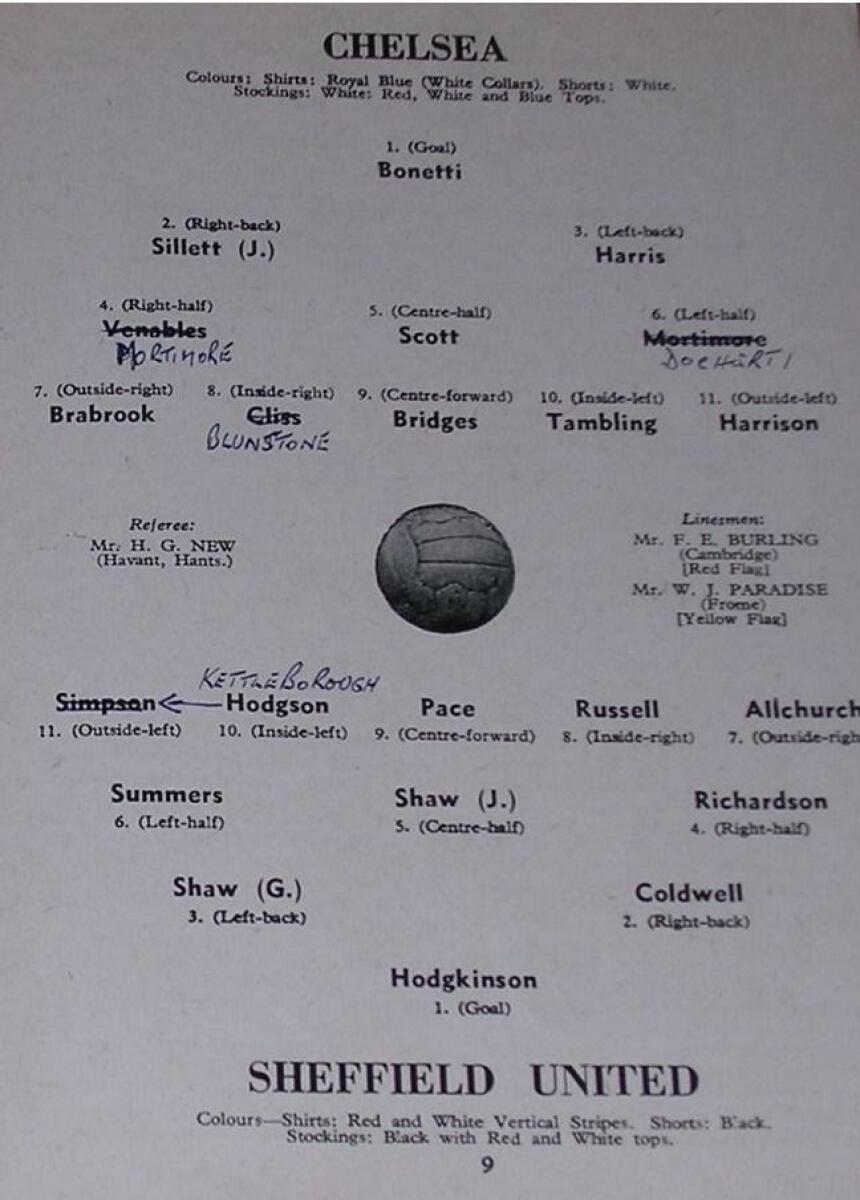 CHELSEA
Colours: Shirts: Royal Blue (White Collars). Shorts: White.
Stockings: White: Red, White and Blue Tops.
1. (Goal)
Bonetti
2. (Right-back)
Sillett (J.)
3. (Left-back)
Harris
4. (Right-half)
Venables
MORTIMORE
5. (Centre-half)
Scott
6. (Left-half)
Mortimore
DOCHERTI
7. (Outside-right)
Brabrook
8. (Inside-right)
Cliss
BLUNSTONE
9. (Centre-forward)
Bridges
10. (Inside-left)
Tambling
11. (Outside-left)
Harrison
Referee:
Mr. H. G. NEW
(Havant, Hants.)
Linesmen:
Mr. F. E. BURLING
(Cambridge)
[Red Flag]
Mr. W. J. PARADISE
(Frome)
[Yellow Flag]
KETTLEBOROUGH
Simpson Hodgson Pace Russell Allchurch
11. (Outside-left) 10. (Inside-left) 9. (Centre-forward) 8. (Inside-right) 7. (Outside-righ
Summers Shaw (J.) Richardson
6. (Left-half) 5. (Centre-half) 4. (Right-half)
Shaw (G.) Coldwell
3. (Left-back) 2. (Right-back)
Hodgkinson
1. (Goal)
SHEFFIELD UNITED
Colours—Shirts: Red and White Vertical Stripes. Shorts: Black.
Stockings: Black with Red and White tops.
9